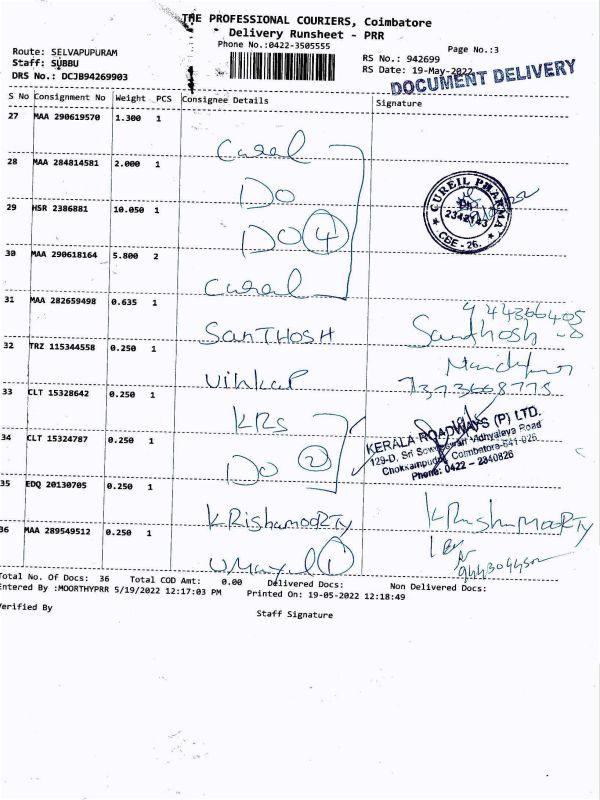 THE PROFESSIONAL COURIERS, Coimbatore
Delivery Runsheet - PRR
Phone No.:0422-3505555
Page No.:3
Route: SELVAPUPURAM
Staff: SUBBU
DRS No.: DCJB94269903
RS No.: 942699
RS Date: 19-May-2022
DOCUMENT DELIVERY
S No Consignment No Weight PCS Consignee Details Signature
27 MAA 290619570 1.300 1
28 MAA 284814581 2.000 1
DO
29 HSR 2386881 10.050 1
DO 4
CUREIL PHARMA
2342143
CBE - 26.
30 MAA 290618164 5.800 2
31 MAA 282659498 0.635 1
SANTHOSH Santhosh
32 TRZ 115344558 0.250 1
33 CLT 15328642 0.250 1
KRS
KERALA ROADWAYS (P) LTD.
34 CLT 15324787 0.250 1
DO 2
Chokkampudur, Coimbatore-641 026
Phone: 0422 - 2340826
35 EDQ 20130705 0.250 1
KRishamooRTy
36 MAA 289549512 0.250 1
1
Total No. Of Docs: 36 Total COD Amt: 0.00 Delivered Docs: Non Delivered Docs:
Entered By :MOORTHYPRR 5/19/2022 12:17:03 PM Printed On: 19-05-2022 12:18:49
Verified By Staff Signature